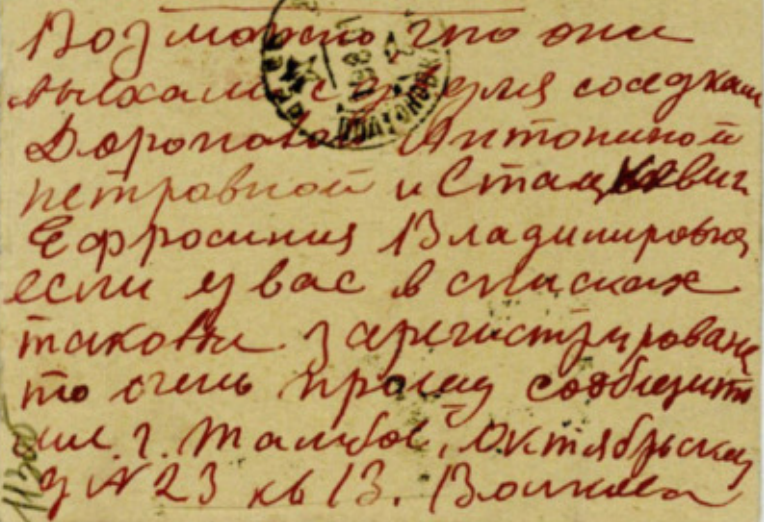 Возможно что они
выехали с двумя соседками
Дороповой Антониной
петровной и Станкевич
Ефросиния Владимировна
если у вас в списках
таковые зарегистрированы
то очень прошу сообщить
г. Тамбов, Октябрьская
У N 23 кв 13.
11305